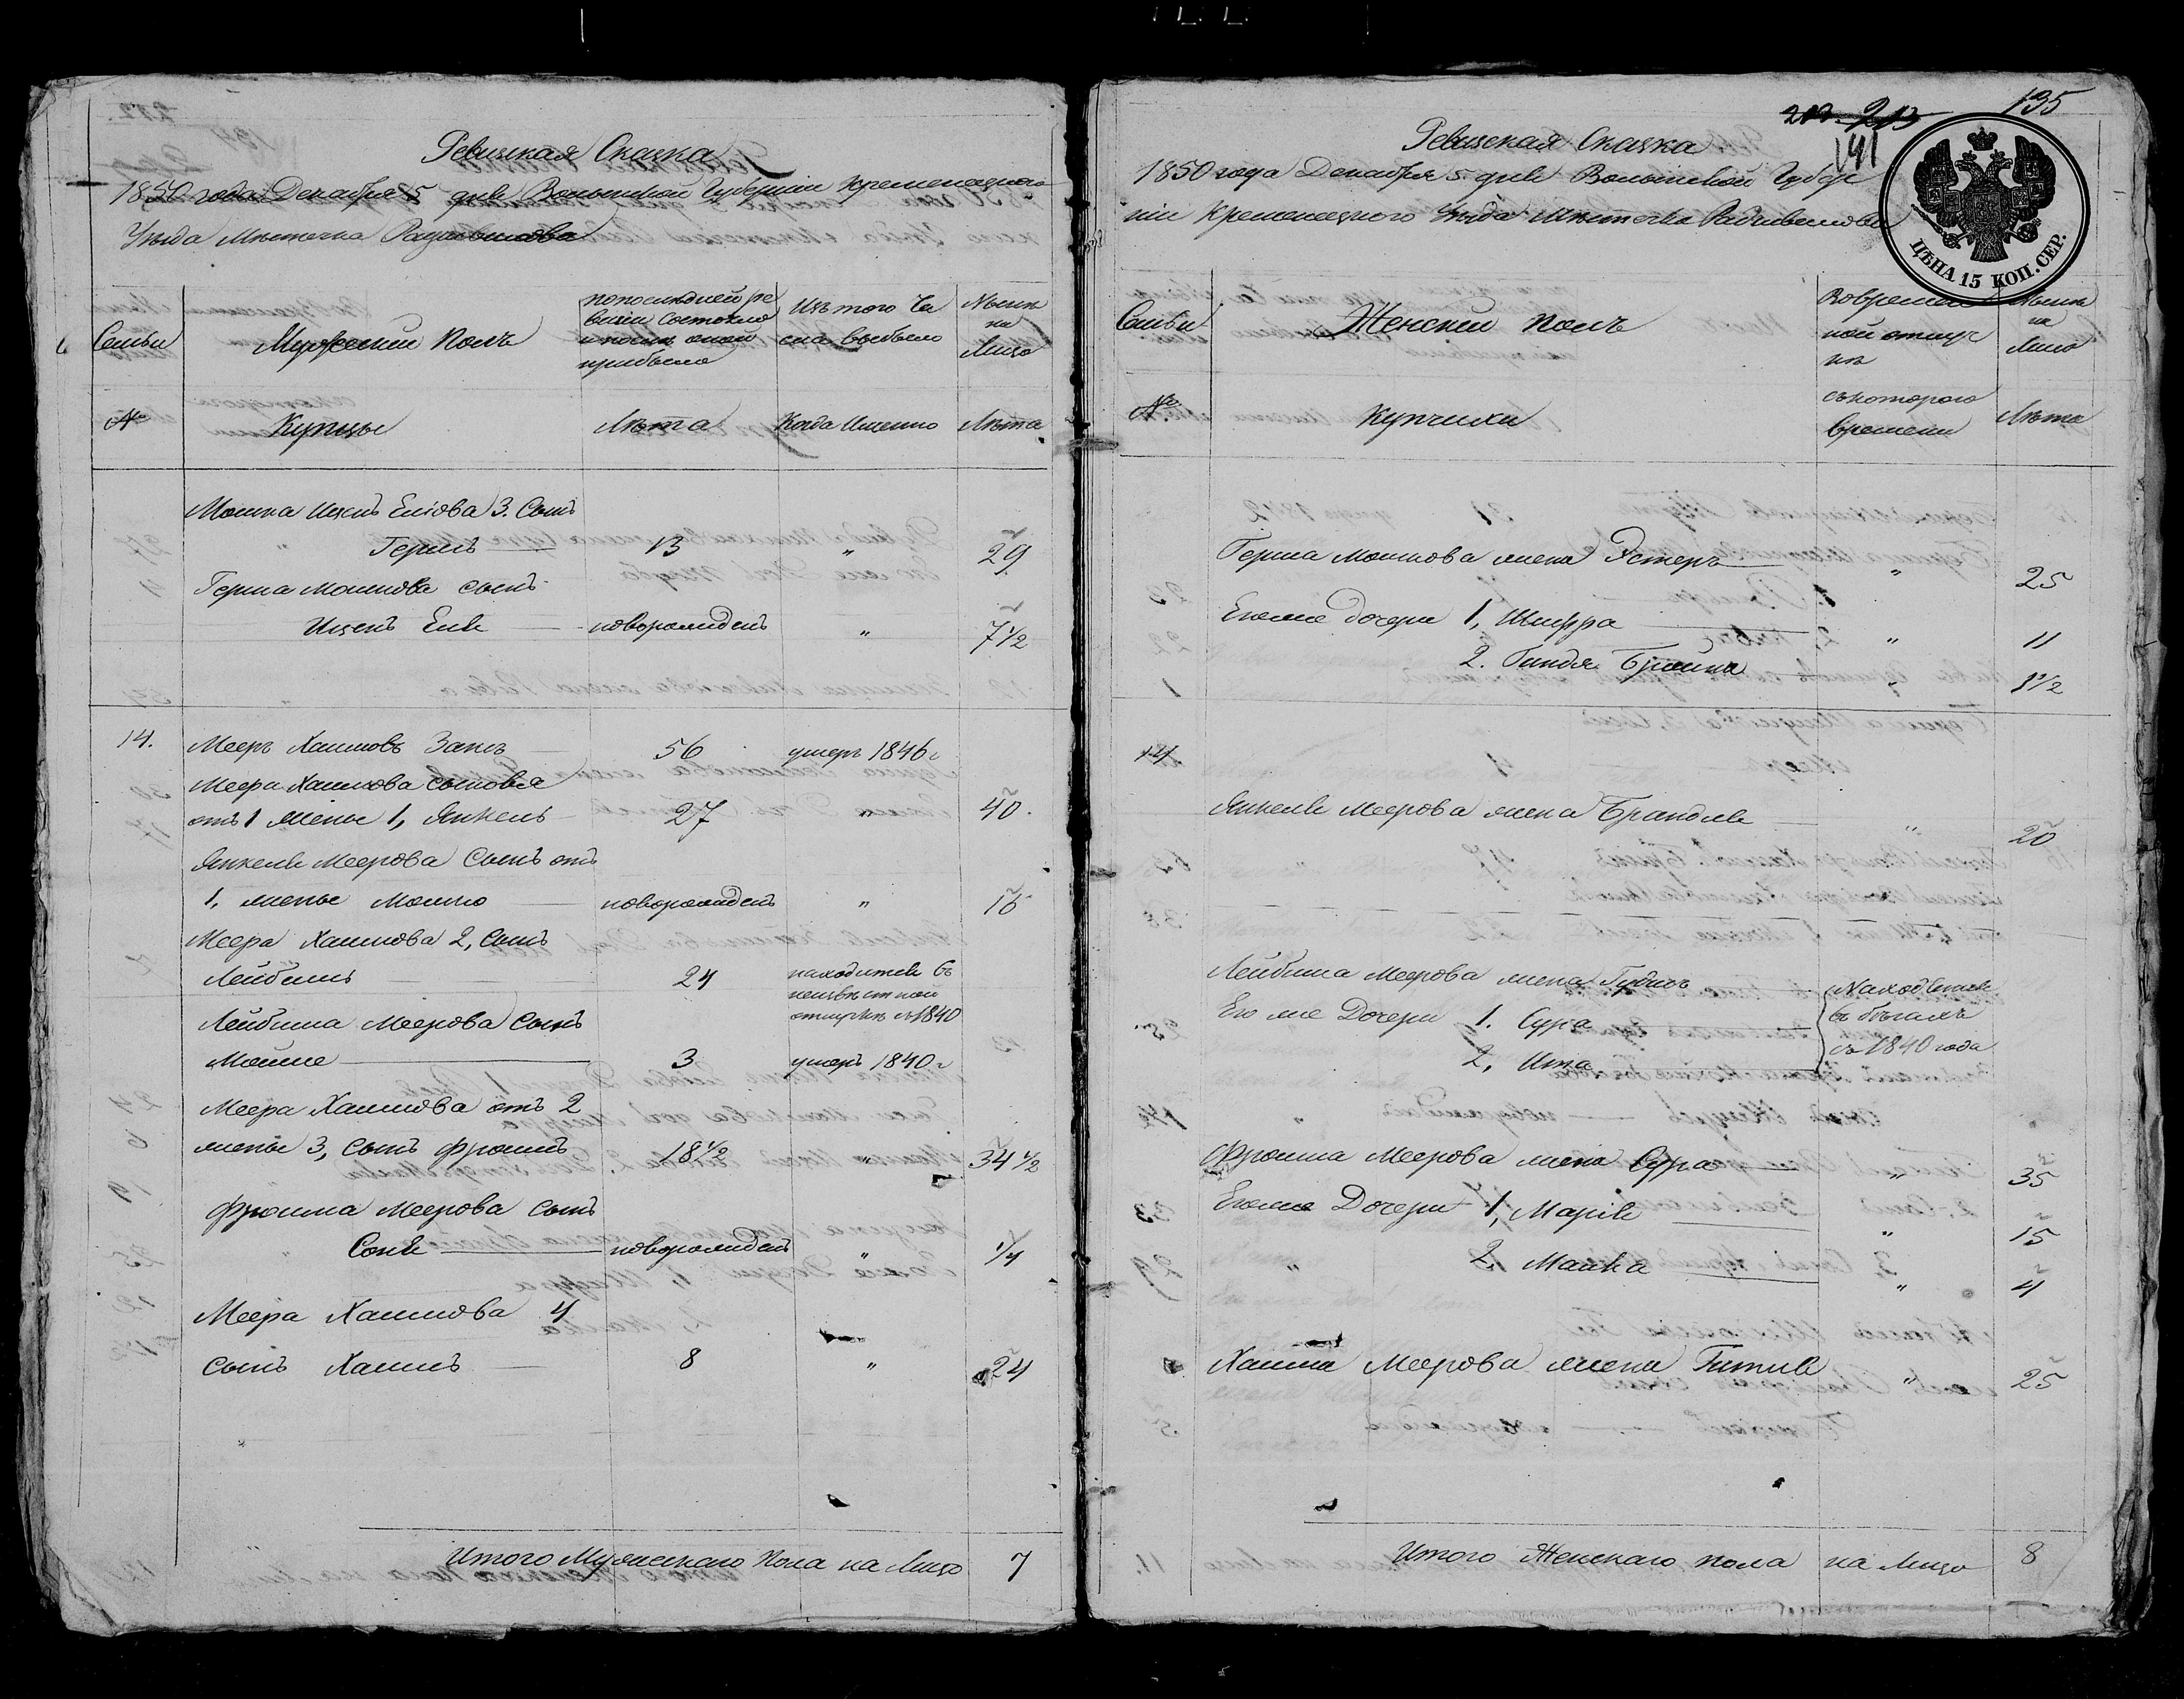 Ревизская Сказка
1850 года Декабря 5 дня Волынской Губерніи Кременецкого
Уѣзда Мѣстечка Радзивилова
Семьи
Мужескій Полъ
По последней ре
визіи Состояло
и послѣ оной
прибыло
Изъ того Чи
сла выбыло
Нынѣ
на
Лицо
№
Купцы
Лѣта
Когда Именно
Лѣта
Мошка Ицекъ Еліова 3. Сынъ
Гершъ 13 " 29
Герша Мошкова сынъ
Ицекъ Еля новорожденъ " 7 1/2
14. Мееръ Хаимовъ Заксъ 56 умеръ 1846 г
Меера Хаимова сыновья
отъ 1 жены 1, Янкель 27 " 40.
Янкеля Меерова Сынъ отъ
1, жены Мошко новорожденъ " 16
Меера Хаимова 2, Сынъ
Лейбишъ 24 находится въ
неизвѣстной
отлучкѣ съ 1840
Лейбиша Меерова Сынъ
Моше 3 умеръ 1840 г
Меера Хаимова отъ 2
жены 3, Сынъ Фроимъ 18 1/2 " 34 1/2
Фроима Меерова Сынъ
новорожденъ " 1/4
Меера Хаимова 4
сынъ Хаимъ 8 " 24
Итого Мужескаго Пола на Лицо 7
135
213
141
Ревизская Сказка
1850 года Декабря 5 дня Волынской Губер
ніи Кременецкого Уѣзда Мѣстечка Радзивилова
ЦѢНА 15 КОП. СЕР.
Семьи
Женскій полъ
Во времен
ной отлуч
кѣ
Нынѣ
на
Лицо
№
Купчихи
съ котораго
времени
Лѣта
Герша Мошкова жена Эстеръ " 25
Его же дочери 1, Шифра " 11
2. Гиндя Брайна " 1 1/2
14
Янкеля Меерова жена Брандля " 20
Лейбиша Меерова жена
Его же Дочери 1. Сура
2, Ита
Находятся
въ бѣгахъ
съ 1840 года
Фроима Меерова жена Сура " 35
Его же Дочери 1, Марія " 15
2, Малка " 4
Хаима Меерова жена Гитля " 25
Итого Женскаго пола на Лицо 8